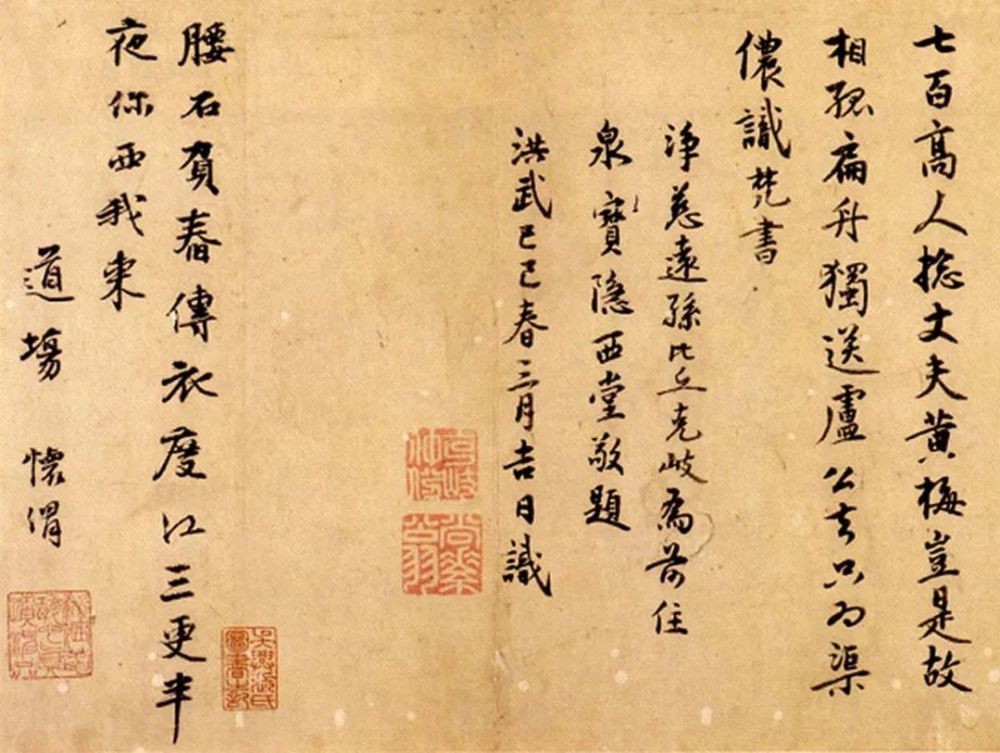 七百高人捴丈夫黄梅豈是故
相孤扁舟獨送盧公去只为渠
儂識梵書
淨慈遠孫比丘克岐為前住
泉寳隐西堂敬題
洪武己巳春三月吉日識
腰石負舂傳衣度江三更半
夜你西我東
道塲 懷渭